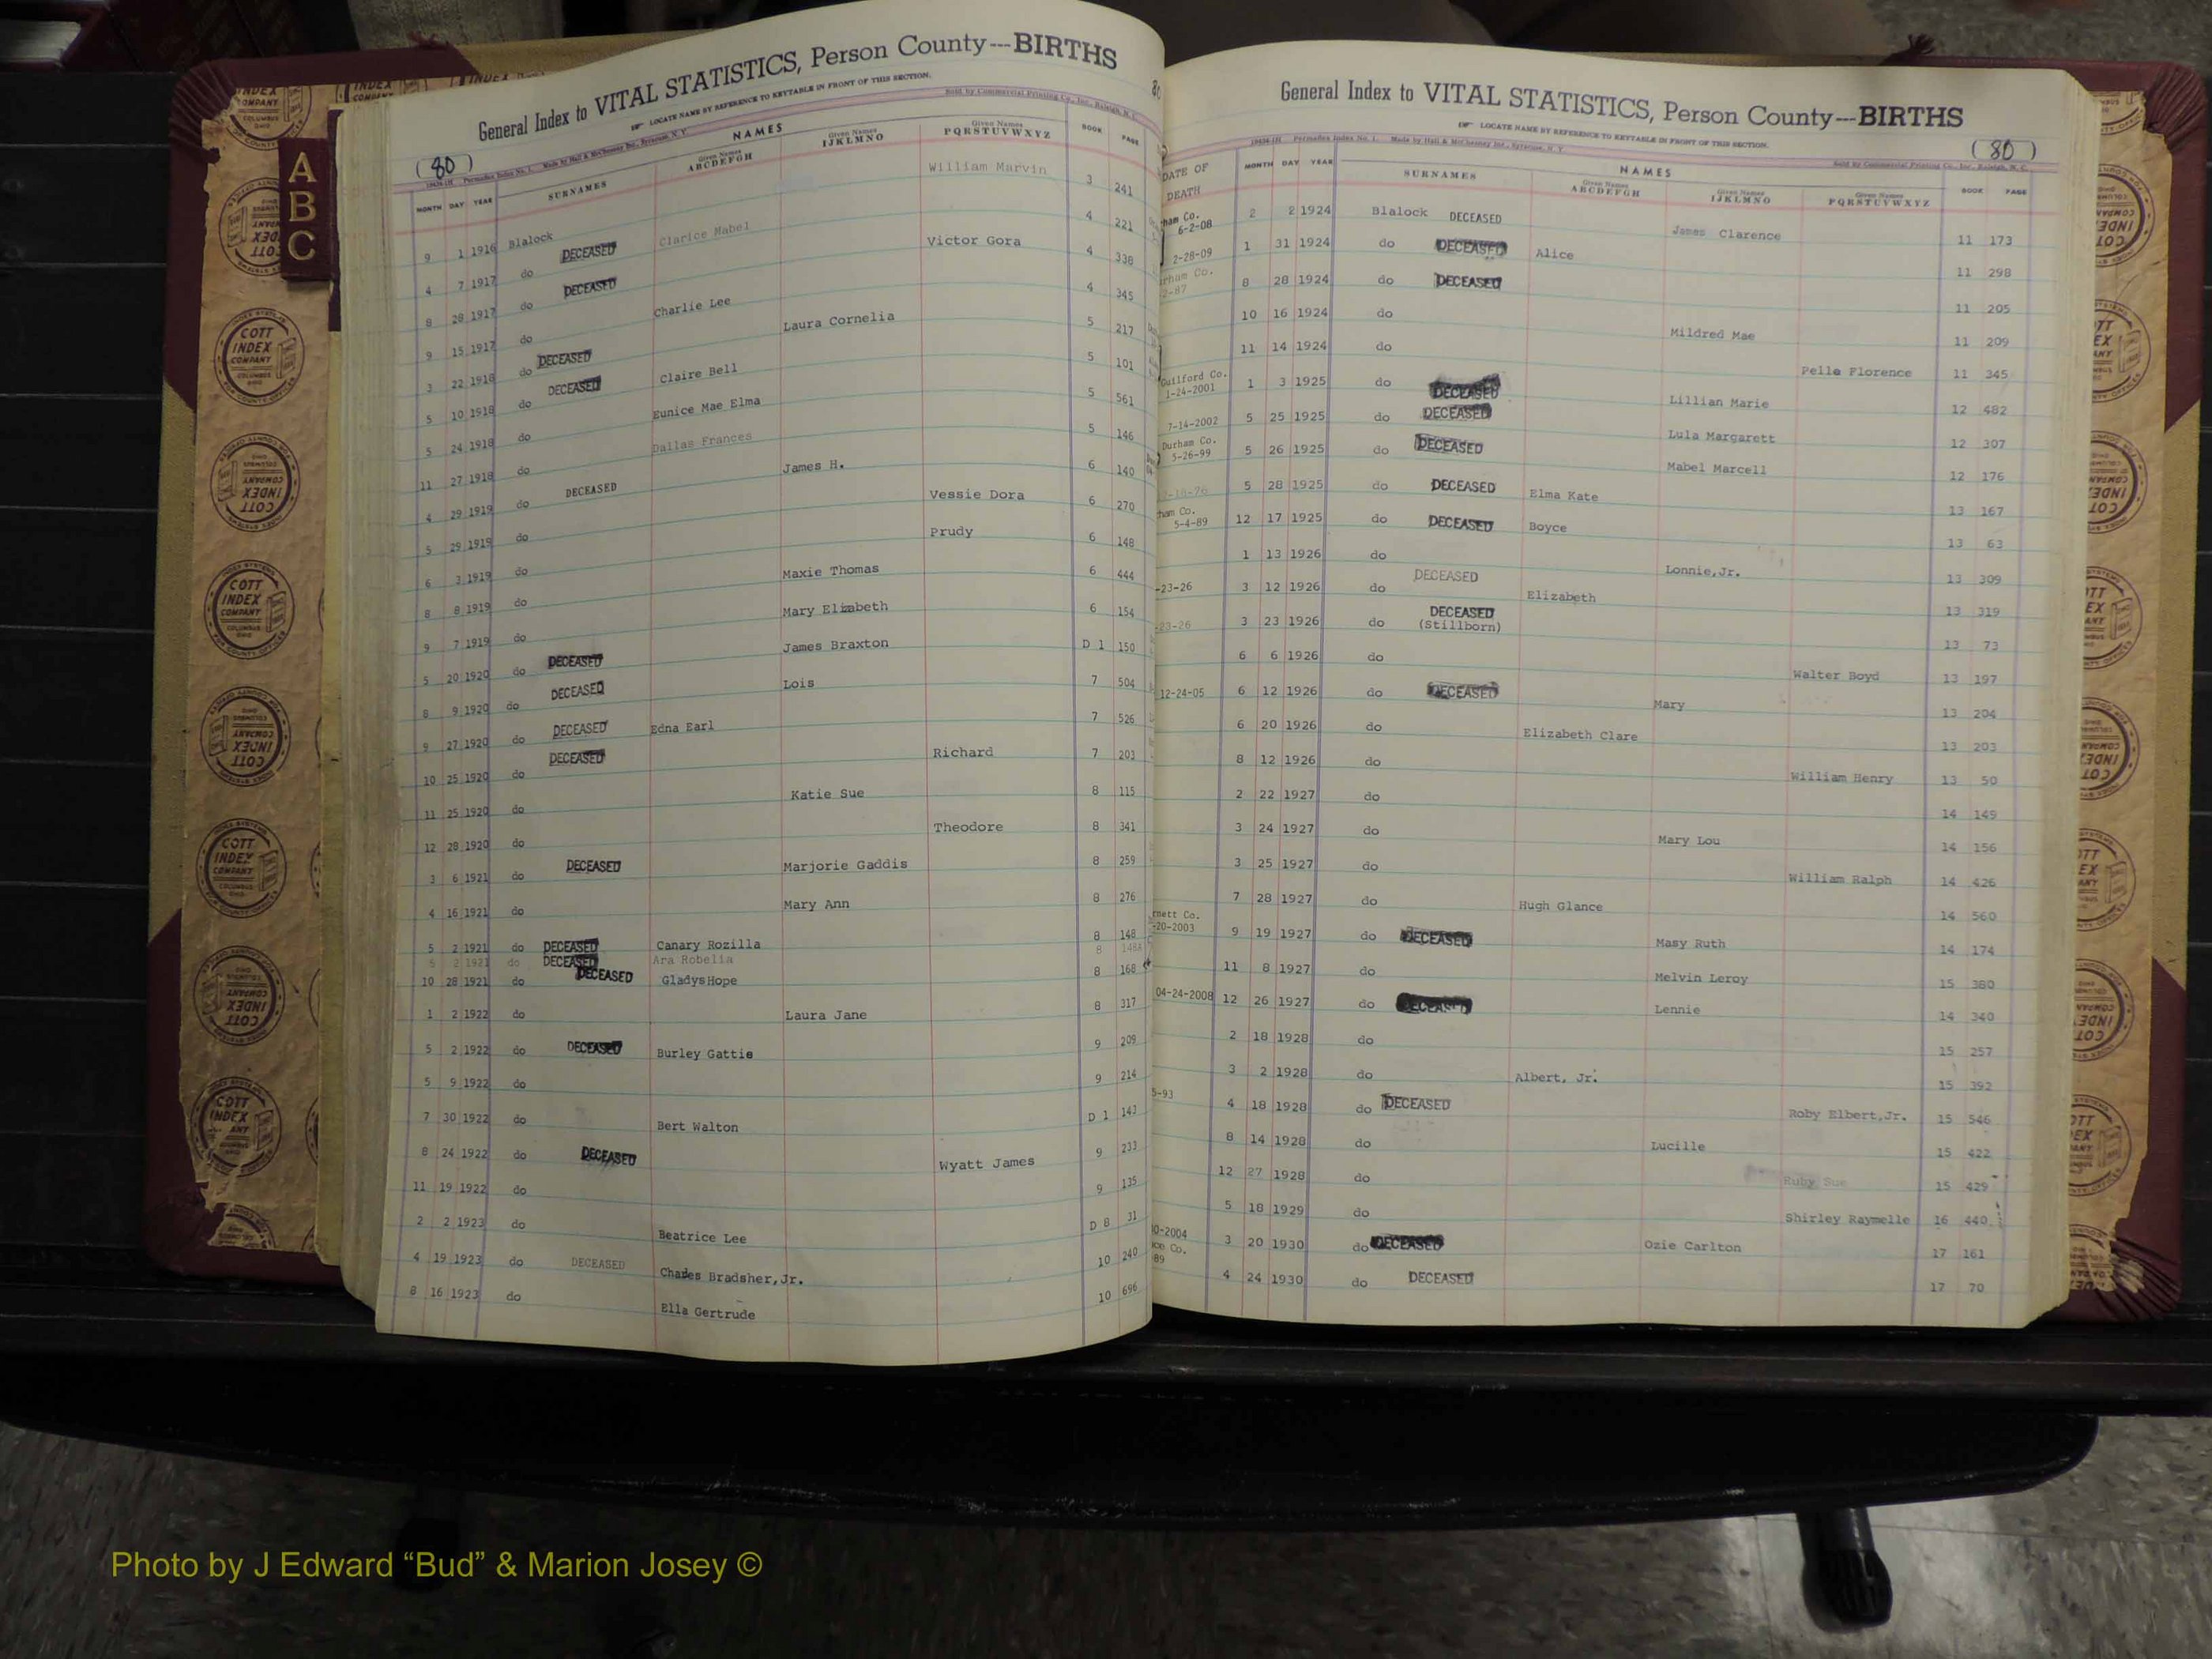 General Index to VITAL STATISTICS, Person County---BIRTHS
LOCATE NAME BY REFERENCE TO KEYTABLE IN FRONT OF THIS SECTION.
Sold by Commercial Printing Co., Inc., Raleigh, N. C.
(80)
NAMES
MONTH DAY YEAR SURNAMES Given Names ABCDEFGH Given Names IJKLMNO Given Names PQRSTUVWXYZ BOOK PAGE
9 1 1916 Blalock William Marvin 3 241
4 7 1917 do DECEASED Clarice Mabel 4 221
8 28 1917 do DECEASED Victor Gora 4 338
9 15 1917 do Charlie Lee 4 345
3 22 1918 do DECEASED Laura Cornelia 5 217
5 10 1918 do DECEASED Claire Bell 5 101
5 24 1918 do Eunice Mae Elma 5 561
11 27 1918 do Dallas Frances 5 146
4 29 1919 do DECEASED James H. 6 140
5 29 1919 do Vessie Dora 6 270
6 3 1919 do Prudy 6 148
8 8 1919 do Maxie Thomas 6 444
9 7 1919 do Mary Elizabeth 6 154
5 20 1920 do DECEASED James Braxton D 1 150
8 9 1920 do DECEASED Lois 7 504
9 27 1920 do DECEASED Edna Earl 7 526
10 25 1920 do DECEASED Richard 7 203
11 25 1920 do Katie Sue 8 115
12 28 1920 do Theodore 8 341
3 6 1921 do DECEASED Marjorie Gaddis 8 259
4 16 1921 do Mary Ann 8 276
5 2 1921 do DECEASED Canary Rozilla 8 148
5 2 1921 do DECEASED Ara Robelia 8 148A
10 28 1921 do DECEASED Gladys Hope 8 168
1 2 1922 do Laura Jane 8 317
5 2 1922 do DECEASED Burley Gattis 9 209
5 9 1922 do 9 214
7 30 1922 do Bert Walton D 1 143
8 24 1922 do DECEASED Wyatt James 9 233
11 19 1922 do 9 135
2 2 1923 do Beatrice Lee D 8 31
4 19 1923 do DECEASED Charles Bradsher,Jr. 10 240
8 16 1923 do Ella Gertrude 10 696
General Index to VITAL STATISTICS, Person County---BIRTHS
LOCATE NAME BY REFERENCE TO KEYTABLE IN FRONT OF THIS SECTION.
Permadex Index No. 1. Made by Hall & McChesney Inc., Syracuse, N. Y.
Sold by Commercial Printing Co., Inc., Raleigh, N. C.
(80)
NAMES
DATE OF DEATH MONTH DAY YEAR SURNAMES Given Names ABCDEFGH Given Names IJKLMNO Given Names PQRSTUVWXYZ BOOK PAGE
ham Co. 6-2-08 2 2 1924 Blalock DECEASED James Clarence 11 173
2-28-09 1 31 1924 do DECEASED Alice 11 298
rham Co. 2-87 8 28 1924 do DECEASED 11 205
10 16 1924 do Mildred Mae 11 209
11 14 1924 do Pella Florence 11 345
Guilford Co. 1-24-2001 1 3 1925 do DECEASED Lillian Marie 12 482
7-14-2002 5 25 1925 do DECEASED Lula Margarett 12 307
Durham Co. 5-26-99 5 26 1925 do DECEASED Mabel Marcell 12 176
5 28 1925 do DECEASED Elma Kate 13 167
ham Co. 5-4-89 12 17 1925 do DECEASED Boyce 13 63
1 13 1926 do Lonnie,Jr. 13 309
-23-26 3 12 1926 do DECEASED Elizabeth 13 319
-23-26 3 23 1926 do DECEASED (Stillborn) 13 73
6 6 1926 do Walter Boyd 13 197
12-24-05 6 12 1926 do DECEASED Mary 13 204
6 20 1926 do Elizabeth Clare 13 203
8 12 1926 do William Henry 13 50
2 22 1927 do 14 149
3 24 1927 do Mary Lou 14 156
3 25 1927 do William Ralph 14 426
7 28 1927 do Hugh Glance 14 560
rnett Co. -20-2003 9 19 1927 do DECEASED Masy Ruth 14 174
11 8 1927 do Melvin Leroy 15 380
04-24-2008 12 26 1927 do DECEASED Lennie 14 340
2 18 1928 do 15 257
3 2 1928 do Albert, Jr. 15 392
5-93 4 18 1928 do DECEASED Roby Elbert,Jr. 15 546
8 14 1928 do Lucille 15 422
12 27 1928 do Ruby Sue 15 429
5 18 1929 do Shirley Raymelle 16 440
0-2004 3 20 1930 do DECEASED Ozie Carlton 17 161
89 4 24 1930 do DECEASED 17 70
A
B
C
COTT INDEX COMPANY COLUMBUS OHIO
Photo by J Edward “Bud” & Marion Josey ©